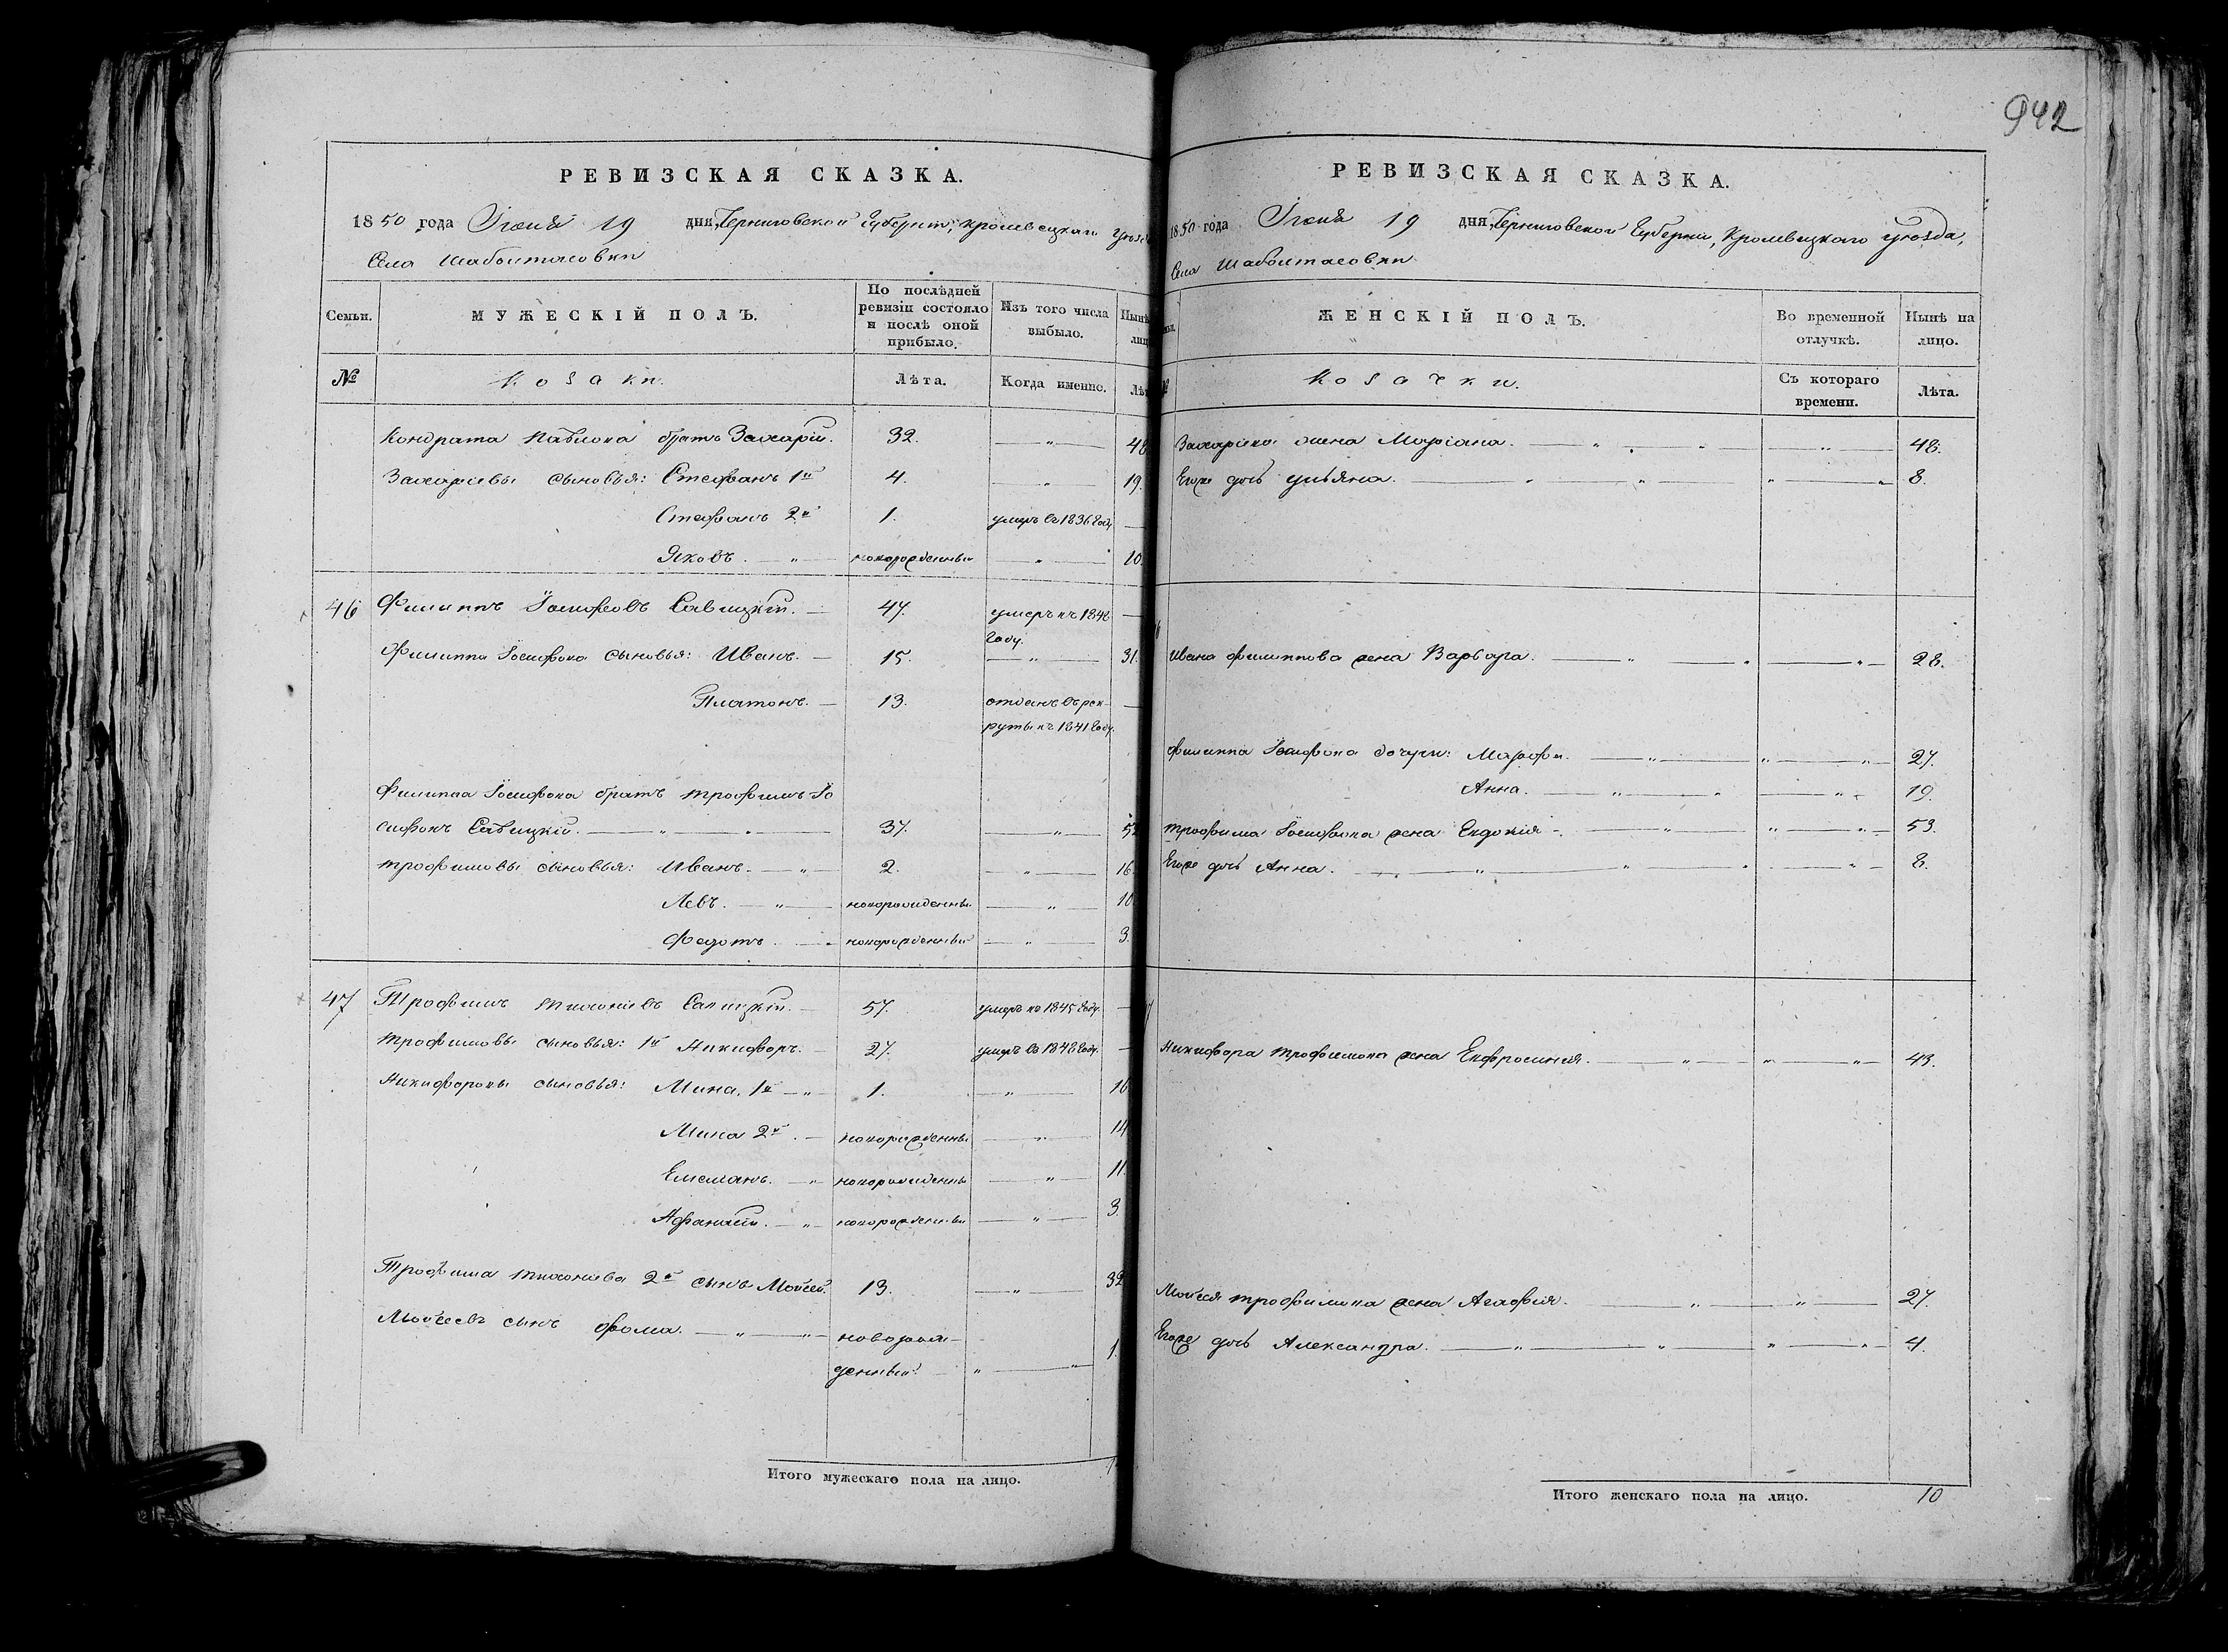 942
РЕВИЗСКАЯ СКАЗКА.
1850 года Іюня 19 дня, Черниговской Губерніи, Кролевецкаго Уѣзда
Села Шаболтасовки
Семьи. МУЖЕСКІЙ ПОЛЪ. По послѣдней ревизіи состояло и послѣ оной прибыло. Изъ того числа выбыло. Нынѣ
№ Козаки. Лѣта. Когда именно.
Кондрата Павлова братъ Захарій. 32. — " — 48
Захаріевы сыновья: Стефанъ 1й 4. — " — 19.
Стефанъ 2й 1. умеръ въ 1836 году —
Яковъ. — " — новорожденный — " — 10.
46 Филиппъ Іосифовъ Савицкій. — 47. умеръ въ 1848 —
году.
Филиппа Іосифова сыновья: Иванъ. — 15. — " — 31.
Платонъ. — 13. отданъ въ рек- —
руты въ 1841 году.
Филиппа Іосифова братъ Трофимъ Іо
сифовъ Савицкій. — " — " — 37. — " — 53
Трофимовы сыновья: Иванъ. — " — 2. — " — 16.
Левъ. — " — новорожденный — " — 10
Федотъ. — новорожденный — " — 3.
47 Трофимъ Тихоніевъ Савицкій. — 57. умеръ въ 1845 году. —
Трофимовы сыновья: 1й Никифоръ. — 27. умеръ въ 1848 году. —
Никифоровы сыновья: Мина. 1й — " — 1. — " —
Мина 2й. — новорожденный — " — 14
Емельянъ. — " новорожденный — " — 11.
Афанасій. — " — новорожденный — " — 3.
Трофима Тихоніева 2й сынъ Мойсей. 13. — " — 32
Мойсеевъ сынъ Фома. — " — " — новорож- 1.
денный. — " — "
Итого мужескаго пола на лицо.
РЕВИЗСКАЯ СКАЗКА.
1850 года Іюня 19 дня, Черниговской Губерніи, Кролевецкаго Уѣзда,
Села Шаболтасовки
ЖЕНСКІЙ ПОЛЪ. Во временной отлучкѣ. Нынѣ на лицо.
Козачки. Съ котораго времени. Лѣта.
Захаріева жена Маріана. — " — " — " — 48.
Егоже дочь Ульяна. — " — " — " — " 8.
Ивана Филиппова жена Варвара. — " — " — " — 28.
Филиппа Іосифова дочери: Марфа. — " — " — " — 27.
Анна. — " — " — " — 19.
Трофима Іосифова жена Евдокія — " — " — " — 53.
Егоже дочь Анна. — " — " — " — " — 8.
Никифора Трофимова жена Евфросинія. — " — " — " — 43.
Мойсея Трофимова жена Агафія. — " — " — 27.
Егоже дочь Александра. — " — " — " — " — 4.
Итого женскаго пола на лицо. 10